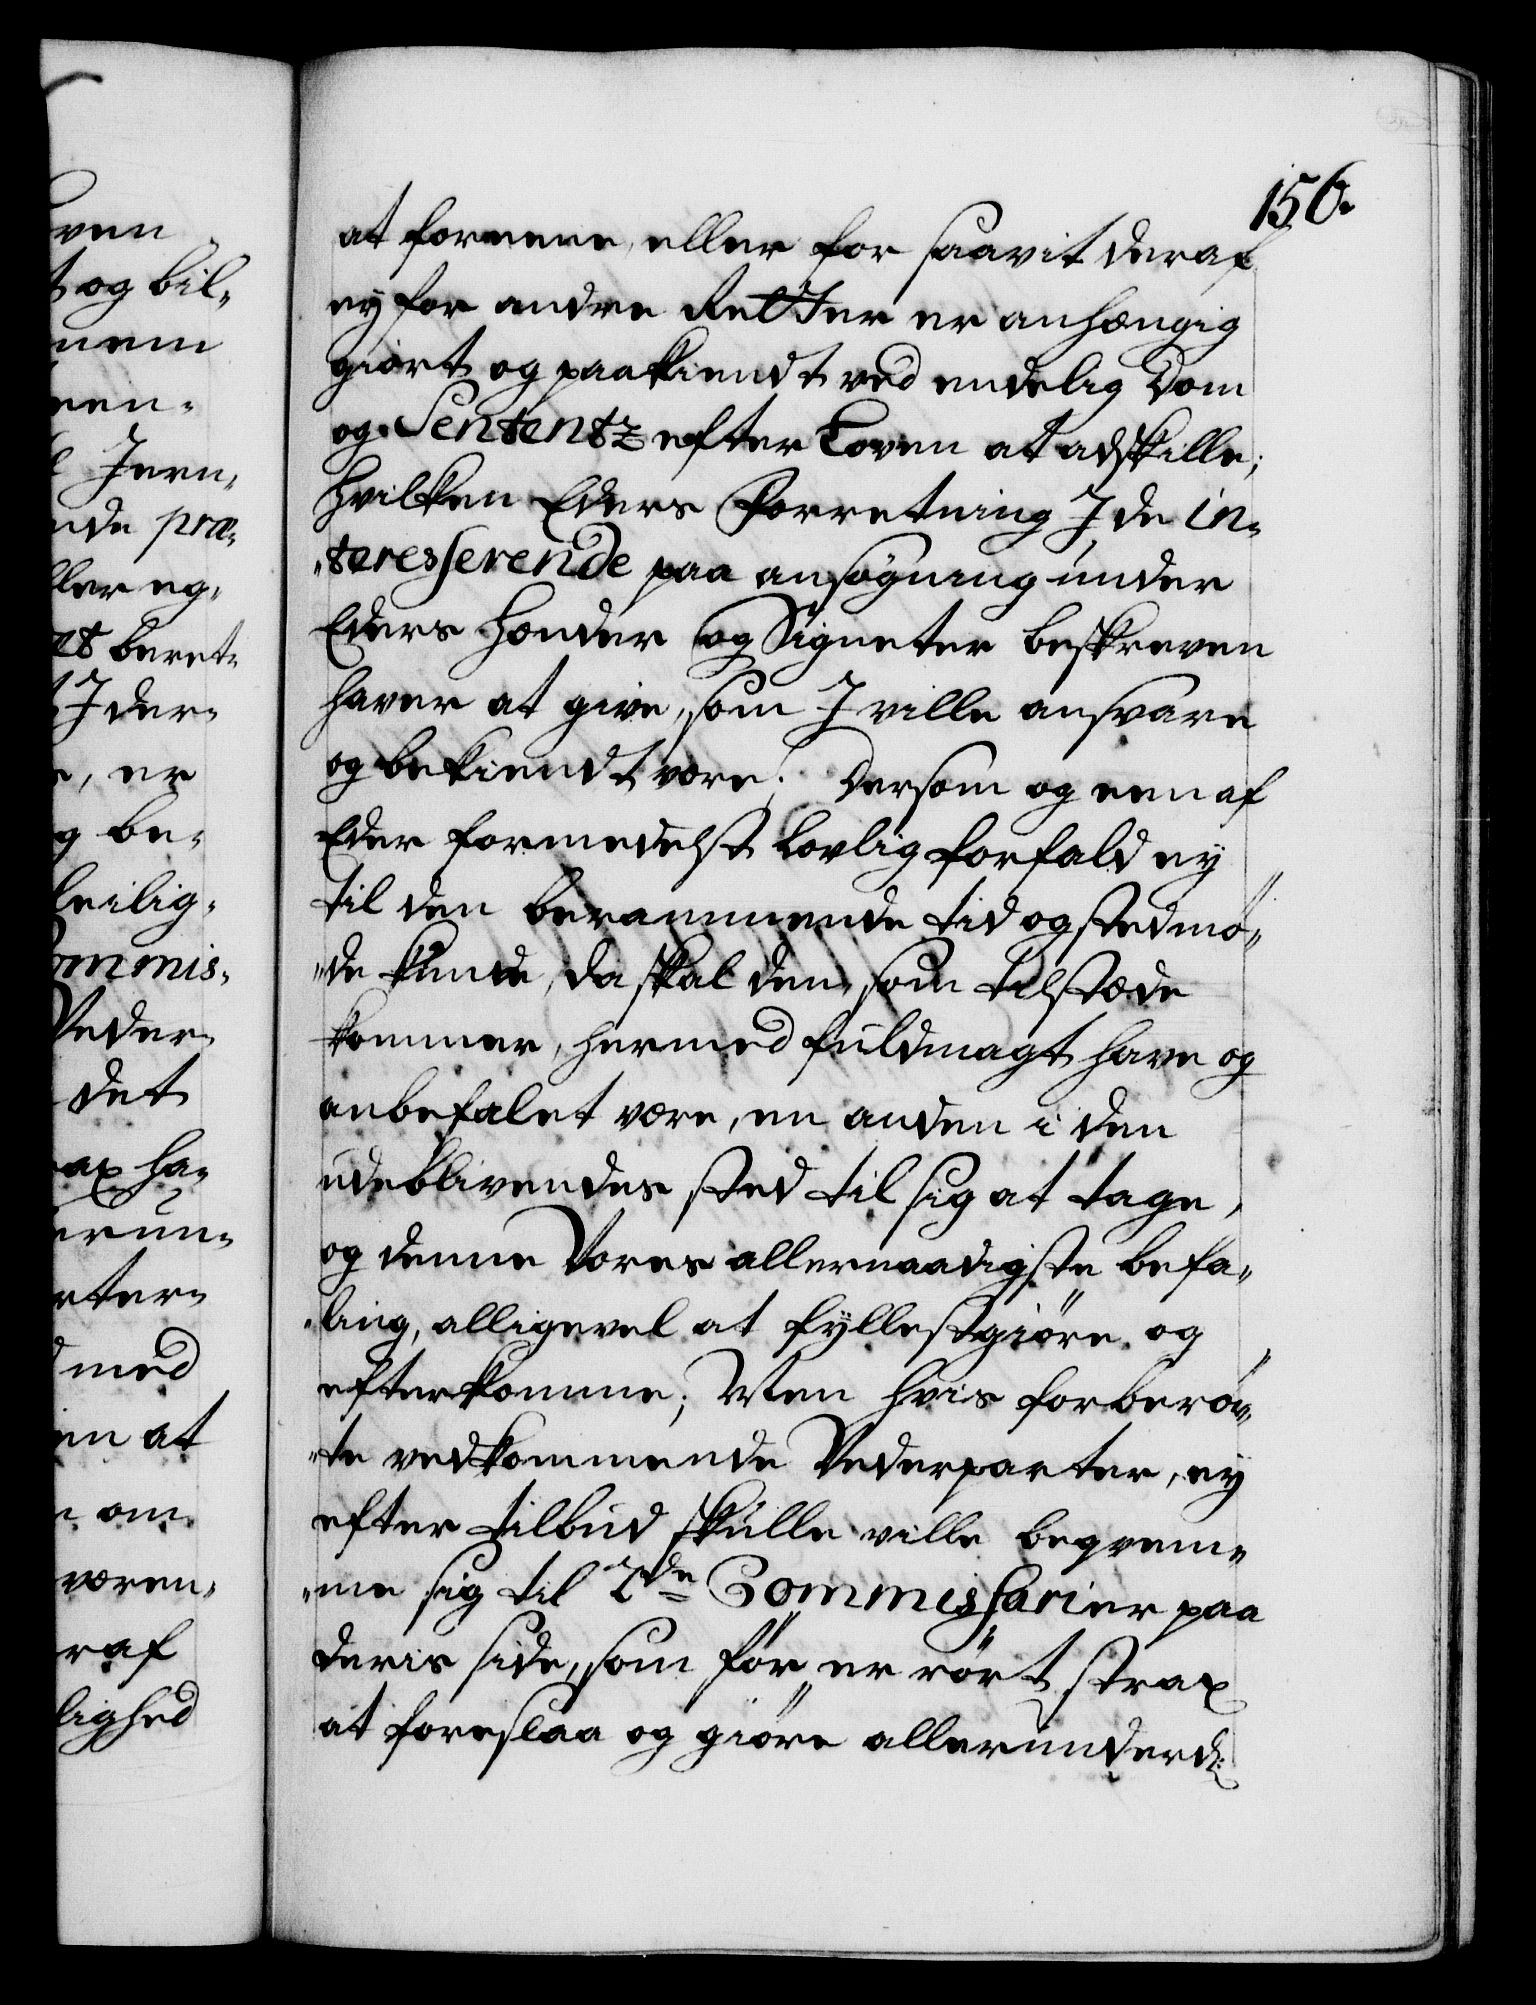 156.
at forene, eller for saavit deraf
ey for andre Retter er anhængig
giort og paakiendt ved endelig Dom
og Sententz efter Loven at adskille;
hvilken Eders Forretning J de in-
teresserende paa ansøgning under
Eders Hænder og Signeter beskreven
haver at give, som J ville ansvare
og bekiendt være; Dersom og een af
Eder formedelst lovlig forfald ey
til den berammende tid og sted mø-
de kunde, da skal den, som tilstæde
kommer, hermed fuldmagt have og
anbefalet være, en anden i den
udeblivendes sted til sig at tage,
og denne Vores allernaadigste befa-
ling, alligevel at fyllestgiøre og
efterkomme; Men hvis forberør-
te vedkommende Vederparter, ey
efter tilbud skulle ville beqvem-
me sig til 2de Commissarier paa
deris side, som før er rørt, strax
at foreslaa og giøre allerunderd:
ven
t og bil-
nem
een-
Jern-
nde præ-
ller eg-
et beret-
t J der-
e, er
g be-
leilig-
ommis-
Veder-
det
ax ha-
erun-
rter-
med
en at
om
væren-
raf
lighed